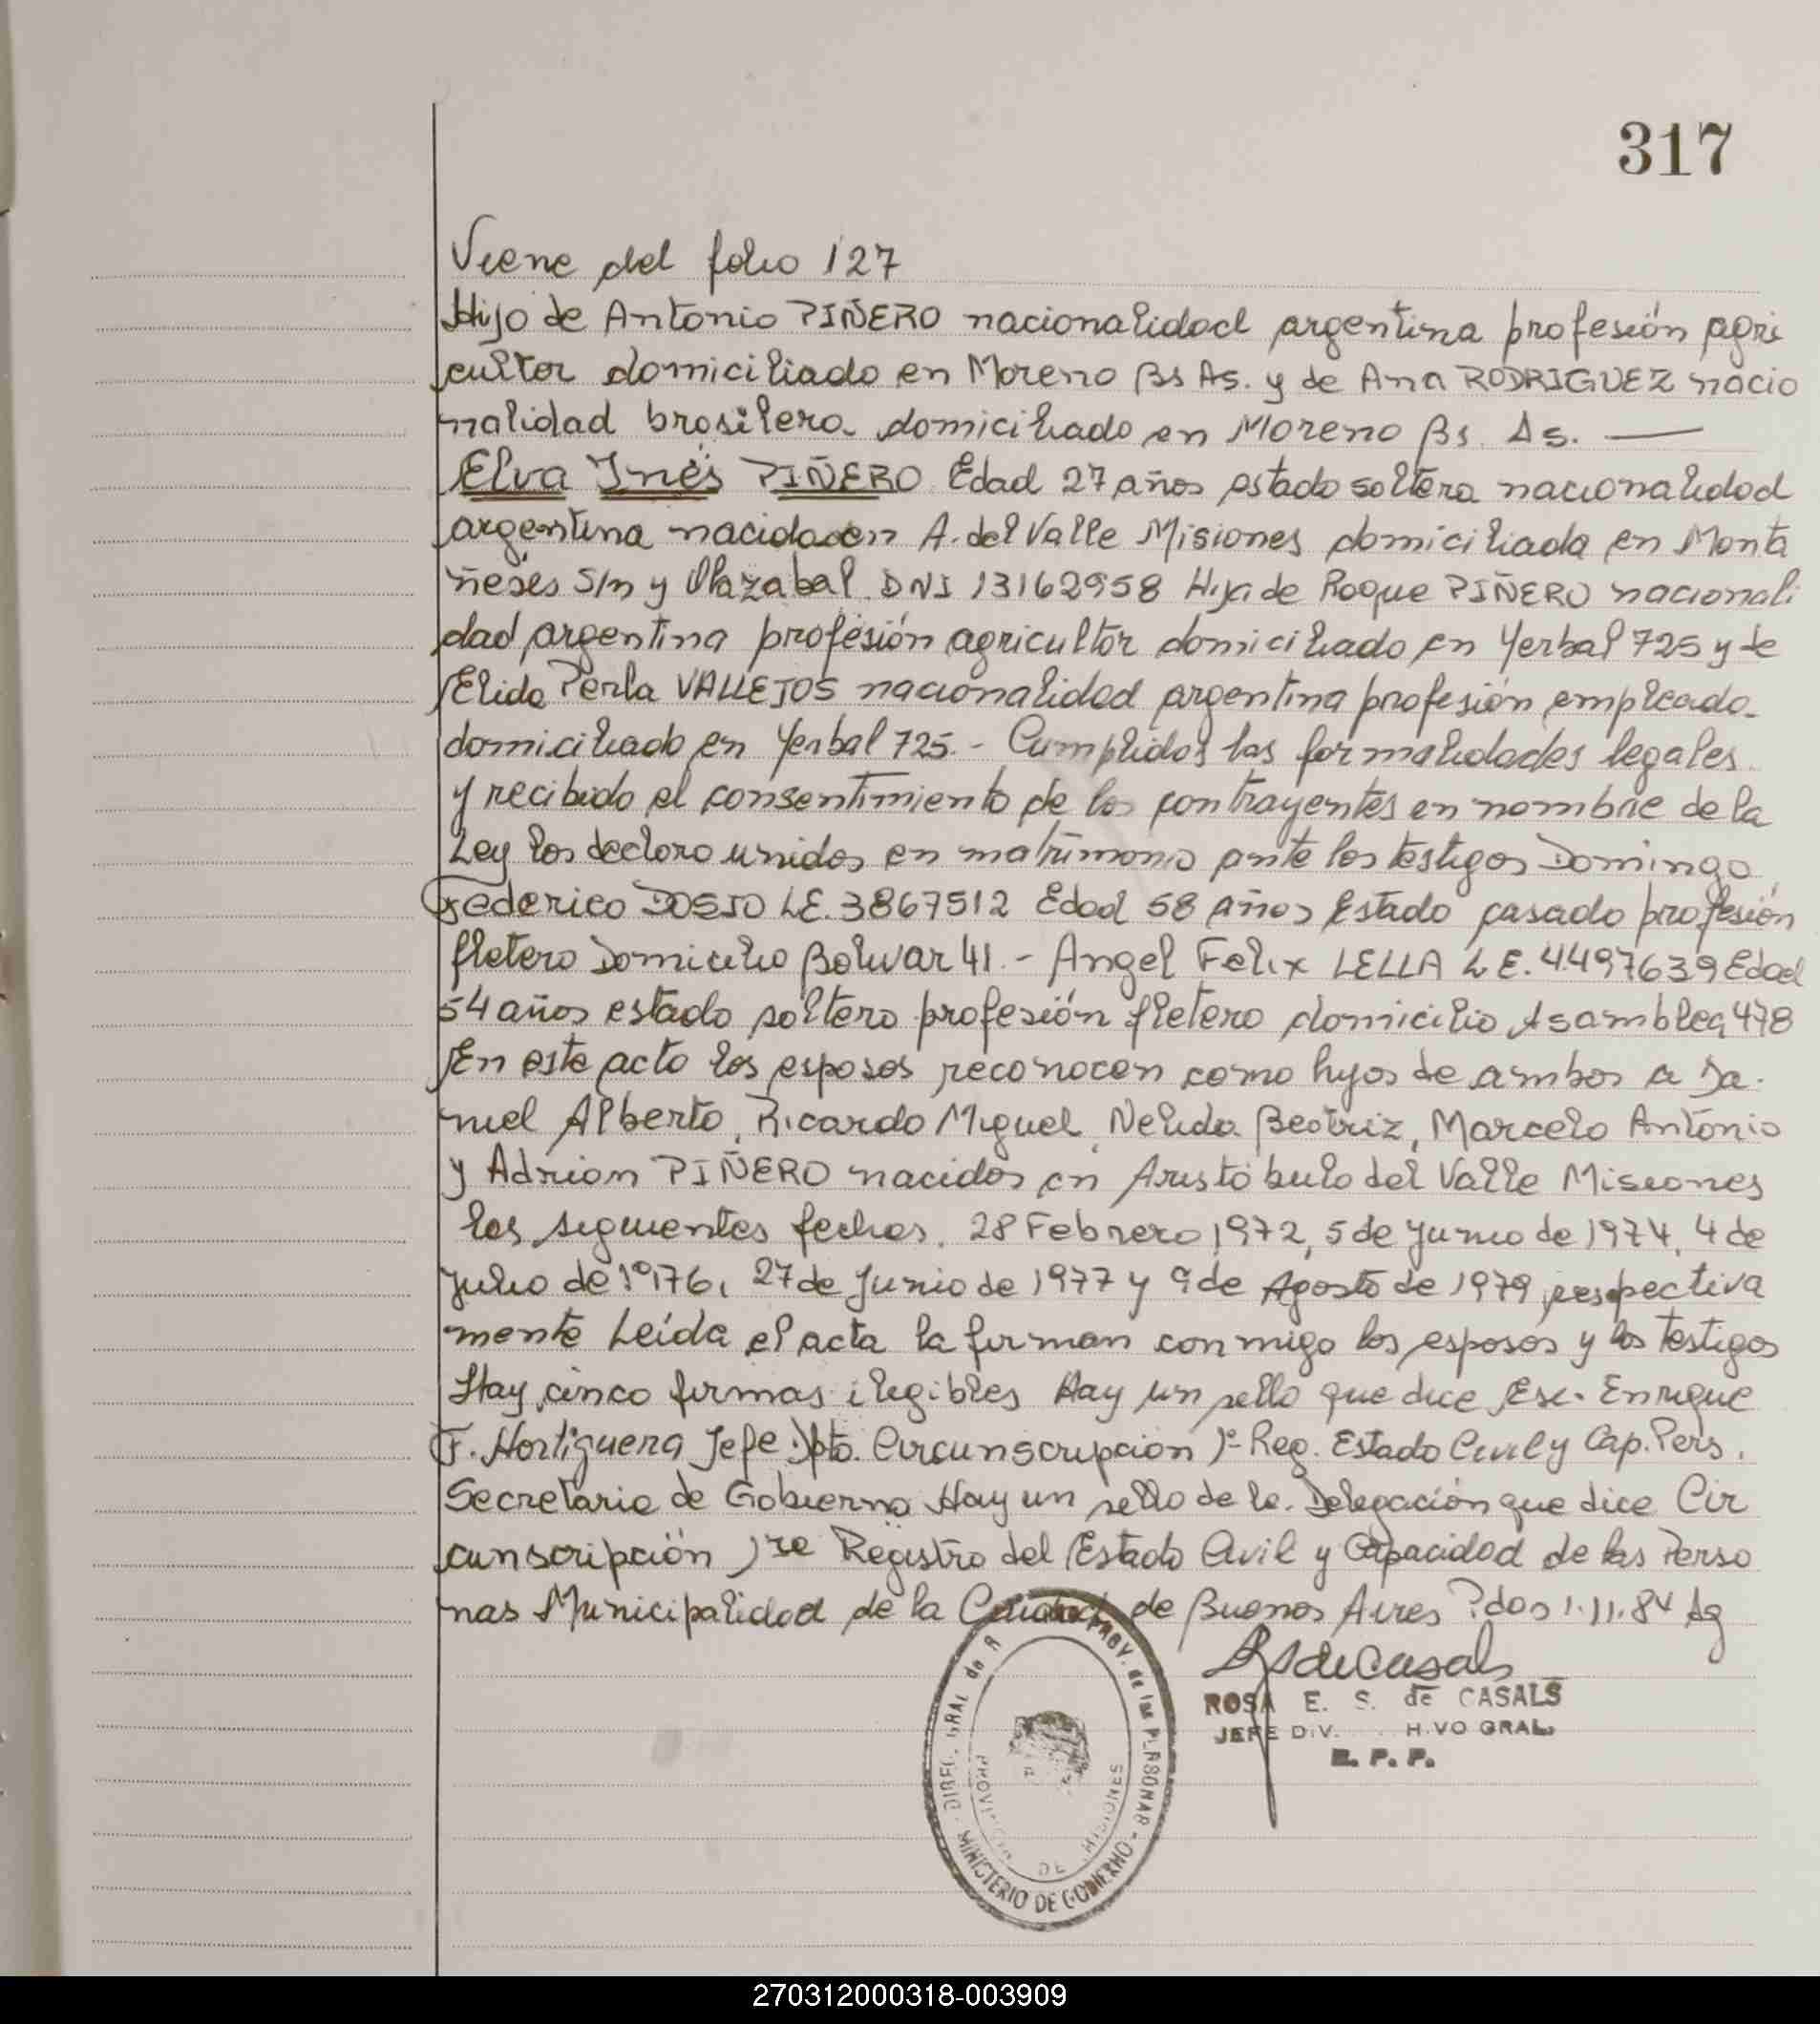 317
Viene del folio 127
Hijo de Antonio PIÑERO nacionalidad argentina profesión agri
cultor domiciliado en Moreno Bs As. y de Ana RODRIGUEZ nacio
nalidad brasilera domiciliado en Moreno Bs. As. —
Elva Inés PIÑERO Edad 27 años estado soltera nacionalidad
argentina nacida en A. del Valle Misiones domiciliada en Monta
ñeses S/n y Olazabal. DNI 13162958 Hija de Roque PIÑERO nacionali
dad argentina profesión agricultor domiciliado en Yerbal 725 y de
Elida Perla VALLEJOS nacionalidad argentina profesión empleada
domiciliado en Yerbal 725.- Cumplidas las formalidades legales
y recibido el consentimiento de los contrayentes en nombre de la
Ley los declaro unidos en matrimonio ante los testigos Domingo
Federico DOSIO LE. 3867512 Edad 58 años Estado casado profesión
fletero Domicilio Bolivar 41.- Angel Felix LELLA L E. 4.497639 Edad
54 años estado soltero profesión fletero domicilio Asamblea 478
En este acto los esposos reconocen como hijos de ambos a Da-
niel Alberto, Ricardo Miguel, Nelida Beatriz, Marcelo Antonio
y Adrian PIÑERO nacidos en Aristóbulo del Valle Misiones
las siguientes fechas. 28 Febrero 1972, 5 de Junio de 1974, 4 de
Julio de 1976, 27 de Junio de 1977 y 9 de Agosto de 1979 respectiva
mente Leída el acta la firman conmigo los esposos y los testigos
Hay cinco firmas ilegibles Hay un sello que dice Esc. Enrique
F. Hortiguera Jefe Dpto. Circunscripcion 1º Reg. Estado Civil y Cap. Pers.
Secretaria de Gobierno Hay un sello de la Delegación que dice Cir
cunscripción 1re Registro del Estado Civil y Capacidad de las Perso
nas Municipalidad de la Ciudad de Buenos Aires Pdas 1.11.84 Ag
ROSA E. S. de CASALS
JEFE DIV. H.VO GRAL.
R. P. P.
DIREC. GRAL de R PROV. de las PERSONAS
MINISTERIO DE GOBIERNO
PROVINCIA DE MISIONES
270312000318-003909